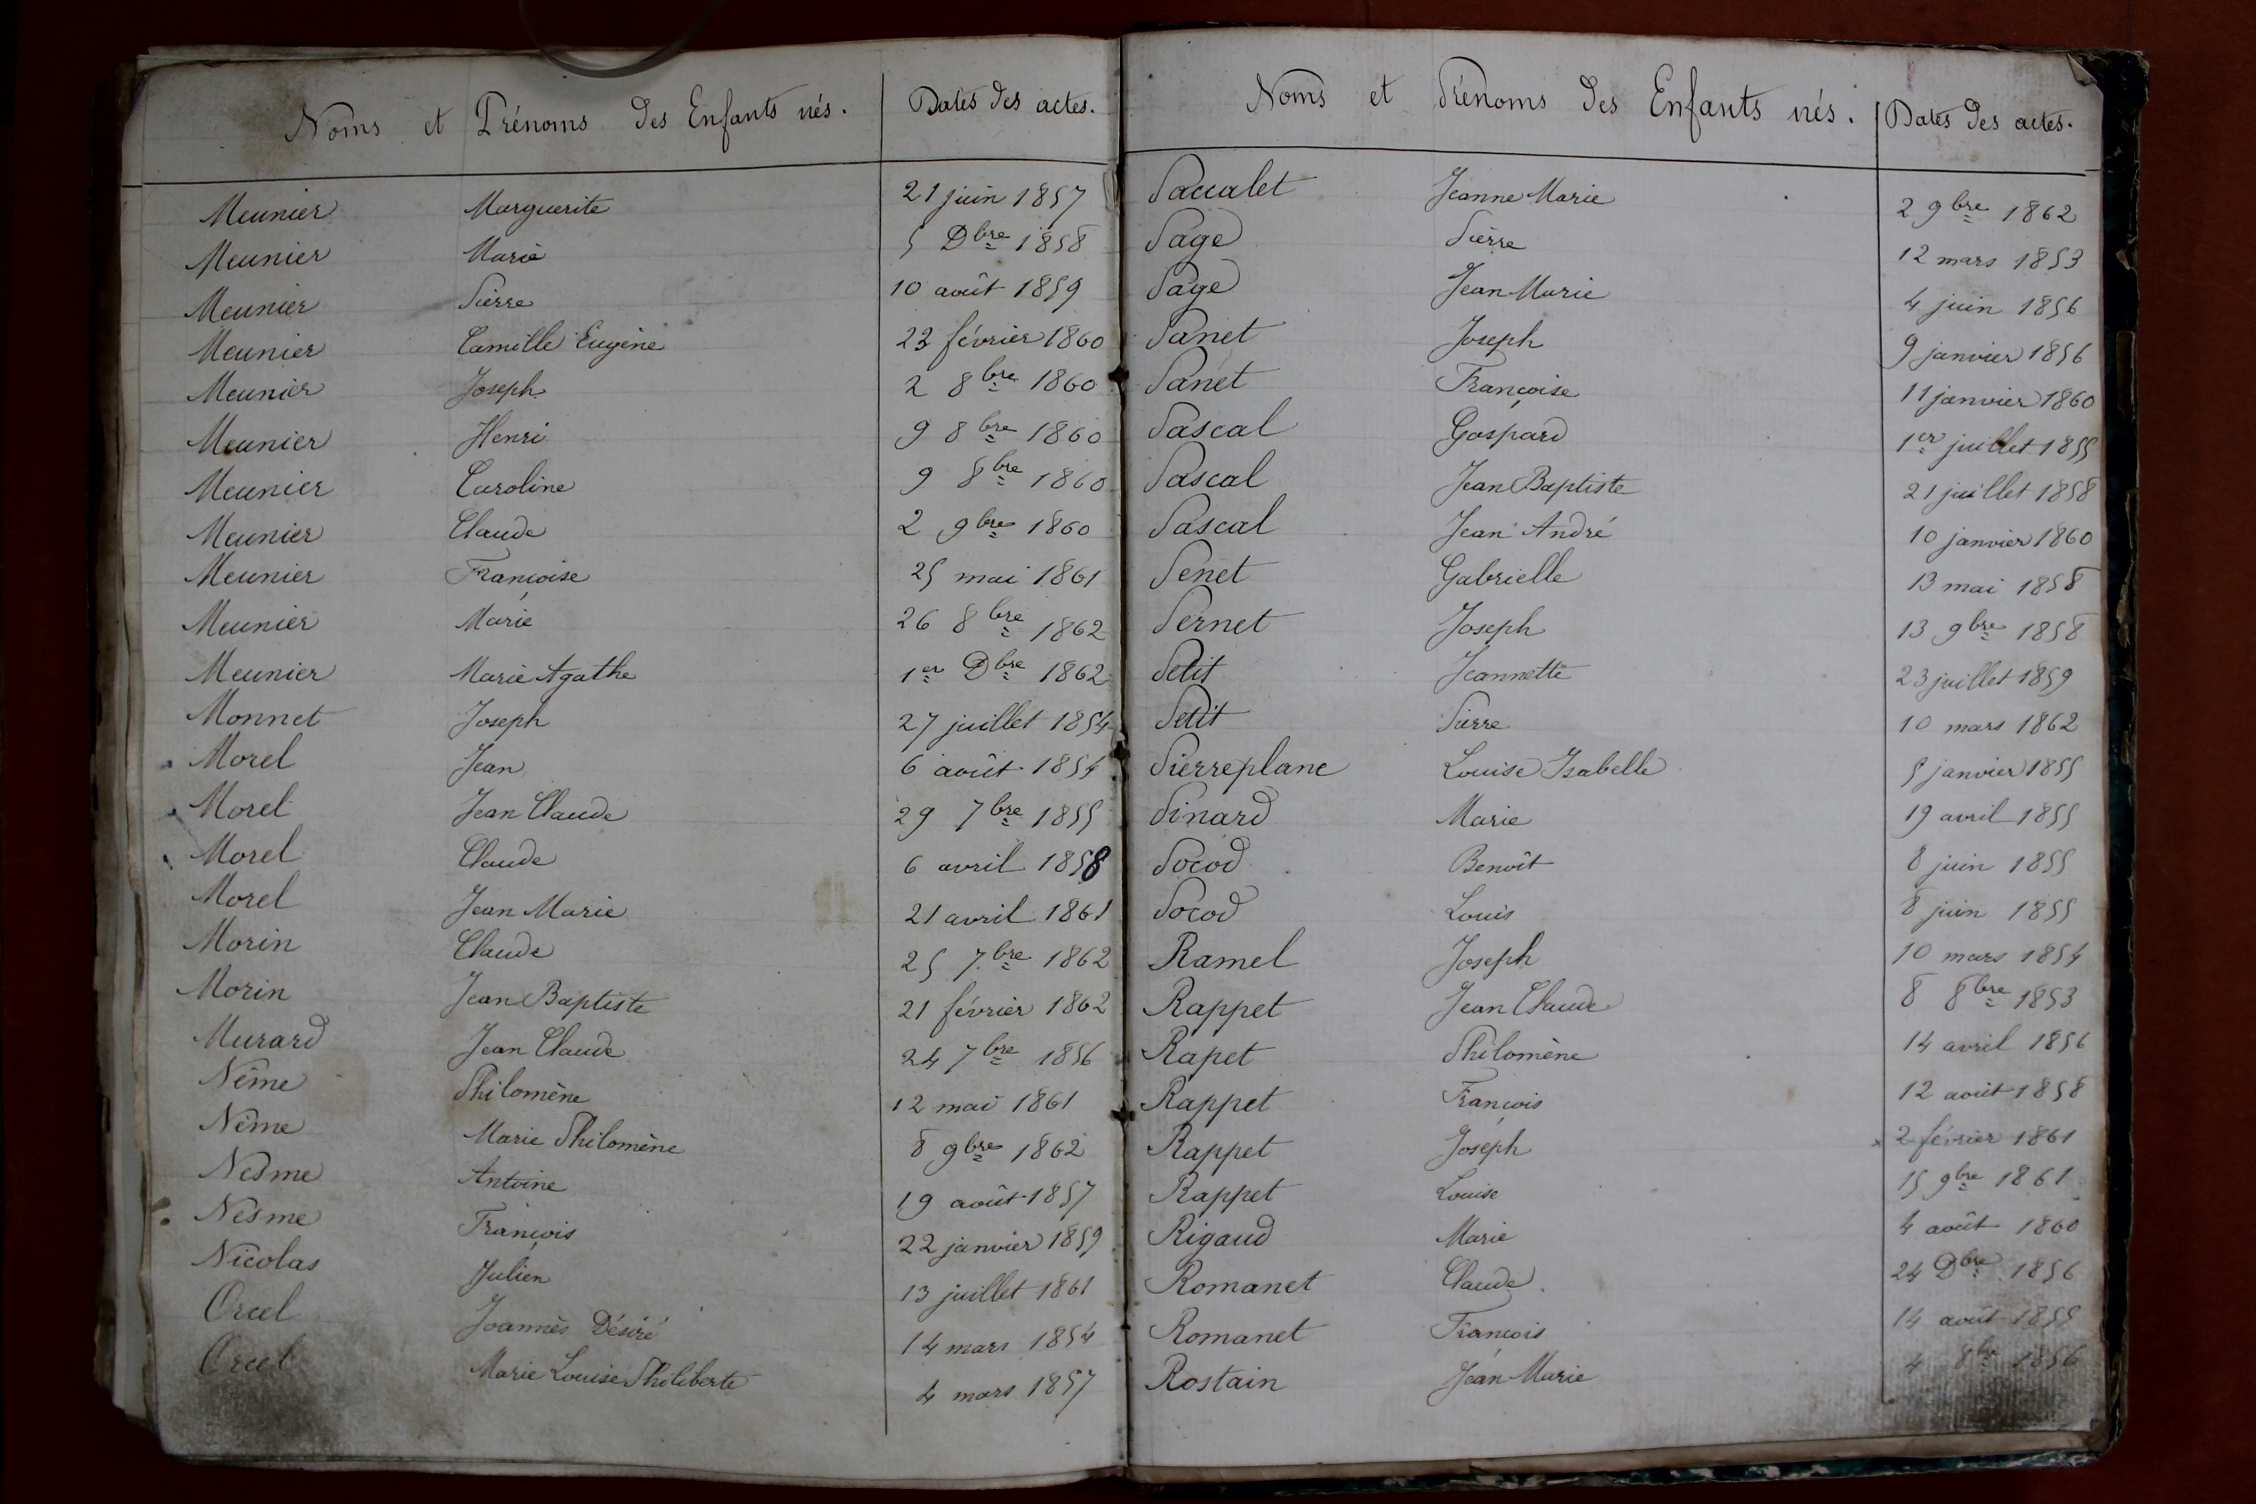 Noms et Prénoms des Enfants nés. Dates des actes.
Meunier Marguerite 21 juin 1857
Meunier Marie 5 Dbre 1858
Meunier Pierre 10 août 1859
Meunier Camille Eugène 23 février 1860
Meunier Joseph 2 8bre 1860
Meunier Henri 9 8bre 1860
Meunier Caroline 9 8bre 1860
Meunier Claude 2 9bre 1860
Meunier Françoise 25 mai 1861
Meunier Marie 26 8bre 1862
Meunier Marie Agathe 1er Dbre 1862
Monnet Joseph 27 juillet 1854
Morel Jean 6 août 1854
Morel Jean Claude 29 7bre 1855
Morel Claude 6 avril 1858
Morel Jean Marie 21 avril 1861
Morin Claude 25 7bre 1862
Morin Jean Baptiste 21 février 1862
Murard Jean Claude 24 7bre 1856
Nême Philomène 12 mai 1861
Nême Marie Philomène 8 9bre 1862
Nesme Antoine 19 août 1857
Nesme François 22 janvier 1859
Nicolas Julien 13 juillet 1861
Orcel Joannès Désiré 14 mars 1854
Orcel Marie Louise Philiberte 4 mars 1857
Noms et Prénoms des Enfants nés. Dates des actes.
Paccalet Jeanne Marie 2 9bre 1862
Page Pierre 12 mars 1853
Page Jean Marie 4 juin 1856
Panet Joseph 9 janvier 1856
Panet Françoise 11 janvier 1860
Pascal Gaspard 1er juillet 1855
Pascal Jean Baptiste 21 juillet 1858
Pascal Jean André 10 janvier 1860
Penet Gabrielle 13 mai 1858
Pernet Joseph 13 9bre 1858
Petit Jeannette 23 juillet 1859
Petit Pierre 10 mars 1862
Pierreplane Louise Isabelle 5 janvier 1855
Pinard Marie 19 avril 1855
Pocod Benoît 8 juin 1855
Pocod Louis 8 juin 1855
Ramel Joseph 10 mars 1854
Rappet Jean Claude 8 8bre 1853
Rapet Philomène 14 avril 1856
Rappet François 12 août 1858
Rappet Joseph 2 février 1861
Rappet Louise 15 9bre 1861
Rigaud Marie 4 août 1860
Romanet Claude 24 Dbre 1856
Romanet François 14 août 1855
Rostain Jean Marie 4 8bre 1856